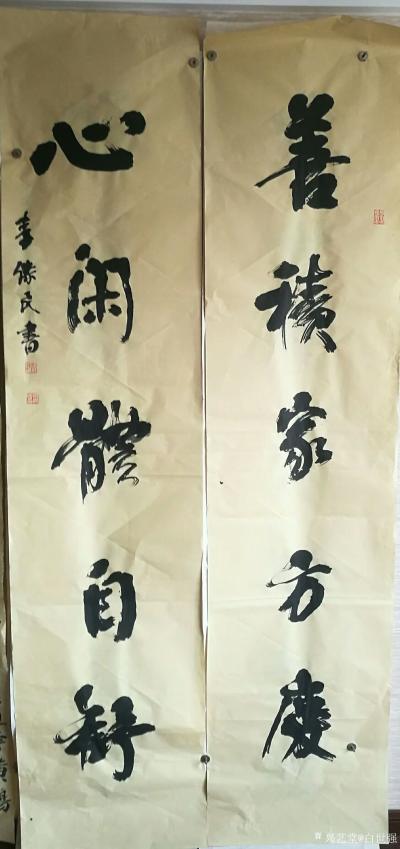 善積家方慶
心闲體自舒
李保民書
吳艺堂@白世强